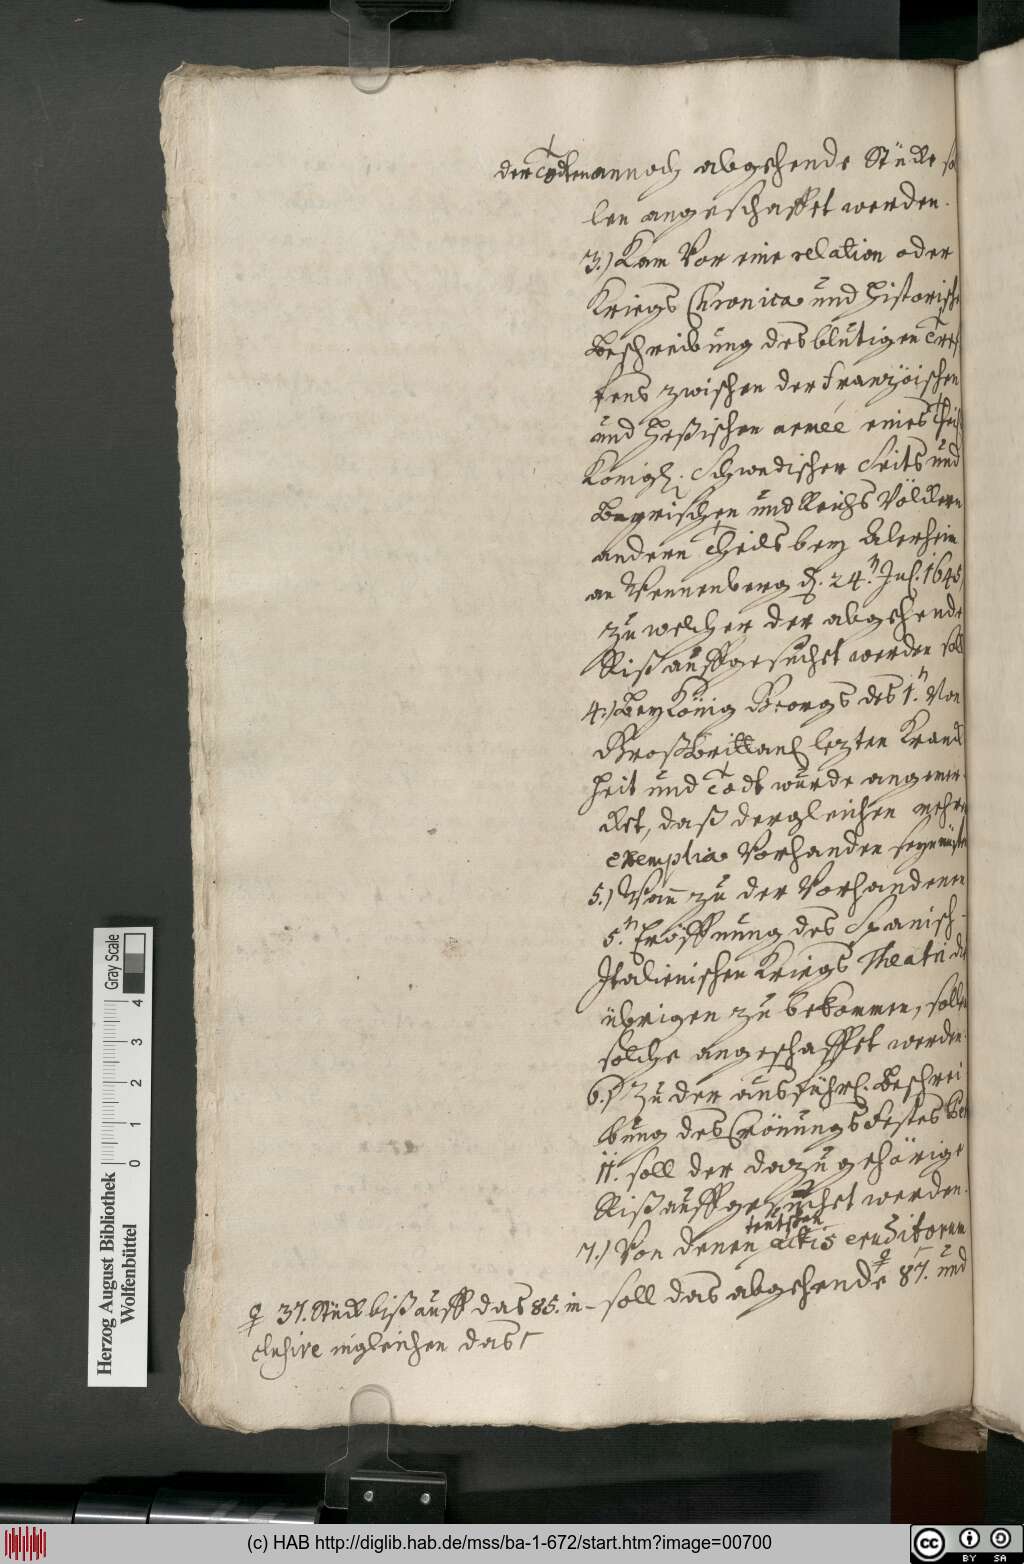 der Todten annoch abgehende Stücke sol
len angeschaffet werden.
3.) Kam Vor eine relation oder
Kriegs Chronica und Historische
Beschreibung des blutigen Tref
fens zwischen der Französischen
und Heßischen armée eines Theils
Königl. Schwedischer Seits und
Bayrischen und Reichs Völckern
andern Theils bey Alerheim
an Wennenberg d. 24.n Jul. 1645
zu welcher der abgehende
Riß auffgesuchet werden soll
4.) Bey König Georgs des 1.n Von
Großbrittan. lezten Kranck
heit und Todt wurde angemer
cket, daß dergleichen mehre
exemplia Vorhanden seyn müsten
5.) Wann zu der Vorhandenen
5.n Eröffnung des Spanisch-
Italienischen Kriegs Theatri die
übrigen zu bekommen, sollen
solche angeschaffet werden.
6.) Zu der ausführl. Beschrei
bung des Crönungs Festes
soll der dazu gehörige
Riß auffgesuchet werden.
teutschen
7.) Von denen actis eruditorum
soll das abgehende ♀ 87. und
♀ 37. Stück biß auff das 85. in-
clusive ingleichen das
Herzog August Bibliothek
Wolfenbüttel
Gray Scale
0 1 2 3 4
(c) HAB http://diglib.hab.de/mss/ba-1-672/start.htm?image=00700
CC BY SA